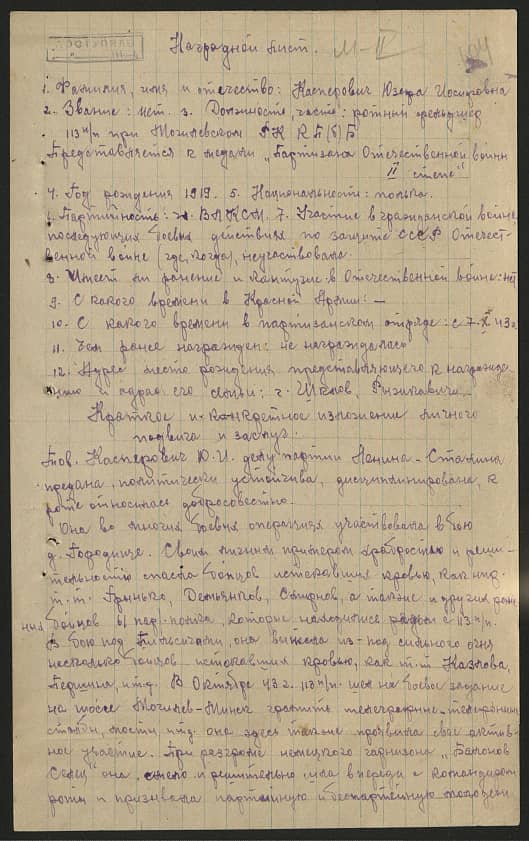 Наградной лист. М-II 104
1. Фамилия, имя и отчество: Касперович Юзефа Иосифовна
2. Звание: нет. 3. Должность, часть: ротный фельдшер
113 п/п при Могилевском РК КП(б)Б
Представляется к медали „Партизана Отечественной войны
II степе"
4. Год рождения 1919. 5. Национальность: полька.
6. Партийность: ВЛКСМ. 7. Участие в гражданской войне,
последующих боевых действиях по защите СССР Отечест-
венной войне (где, когда) неучаствовала.
8. Имеет ли ранение и контузие в Отечественной войне: нет
9. С какого времени в Красной Армии: —
10. С какого времени в партизанском отряде: с 7.X 43 г.
11. Чем ранее награжден: не награждалась
12. место рождения представляющего к награжде
нию и адрес его семьи: г. Шклов,
Краткое и конкретное изложение личного
подвига и заслуг.
Тов. Касперович Ю.И. делу партии Ленина-Сталина
предана, политически устойчива, дисциплинирована, к
роте относилась добросовестно.
Она во многих боевых операциях участвовала в бою
д. Городище. Своим личным примером храбростью и реши-
тельностью спасла бойцов истекавших кровью, как
т.т. Гринько, Демьянков, Смирнов, а также и других
бойцов 61 пар. полка, которые находились рядом с 113 п/п.
В бою под она вынесла из-под сильного огня
несколько бойцов истекавших кровью, как т.т Казлова,
и т.д. В Октябре 43 г. 113 п/п. шел на боевое задание
на шоссе Могилев-Минск громить телеграфные-телефонные
столбы, мосты и т.д. она здесь также проявила свое актив-
ное участие. При разгроме немецкого гарнизона
Селец" она, смело и решительно шла впереди с командиром
роты и призывала партийную и беспартийную молодежь